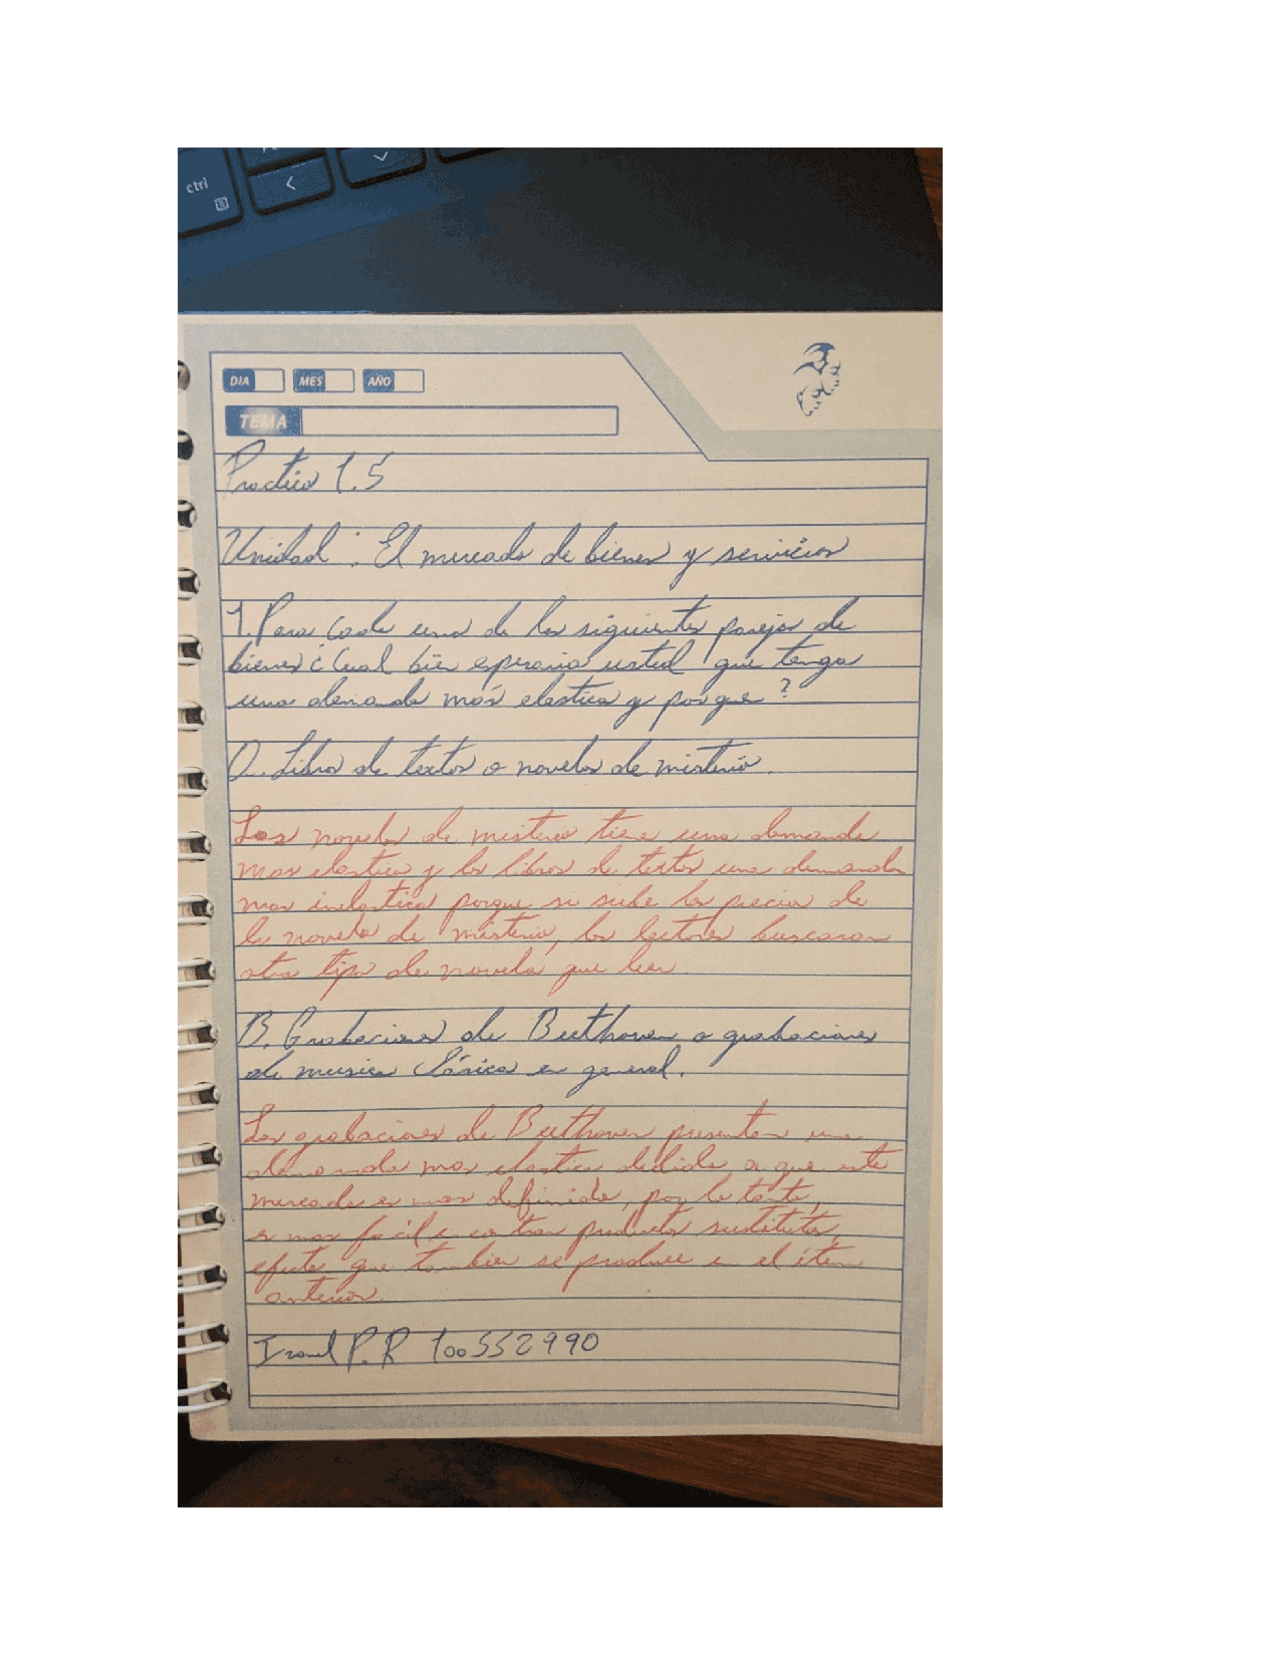 ctrl
DIA MES AÑO
TEMA
Practica 1.5
Unidad: El mercado de bienes y servicios
1. Para cada una de las siguientes parejas de
bienes ¿Cual bien esperaria usted que tenga
una demanda más elastica y porque?
A. Libros de textos o novelas de misterio.
Las novelas de misterio tiene una demanda
mas elastica y los libros de textos una demanda
mas inelastica porque si sube los precios de
la novela de misterio, los lectores buscaran
otro tipo de novela que leer.
B. Grabaciones de Beethoven o grabaciones
de musica clásica en general.
Las grabaciones de Beethoven presentan una
demanda mas elastica debido a que este
mercado es mas definido, por lo tanto,
es mas facil encontrar productos sustitutos,
efecto que tambien se produce en el ítem
anterior.
Israel P.R 100552990